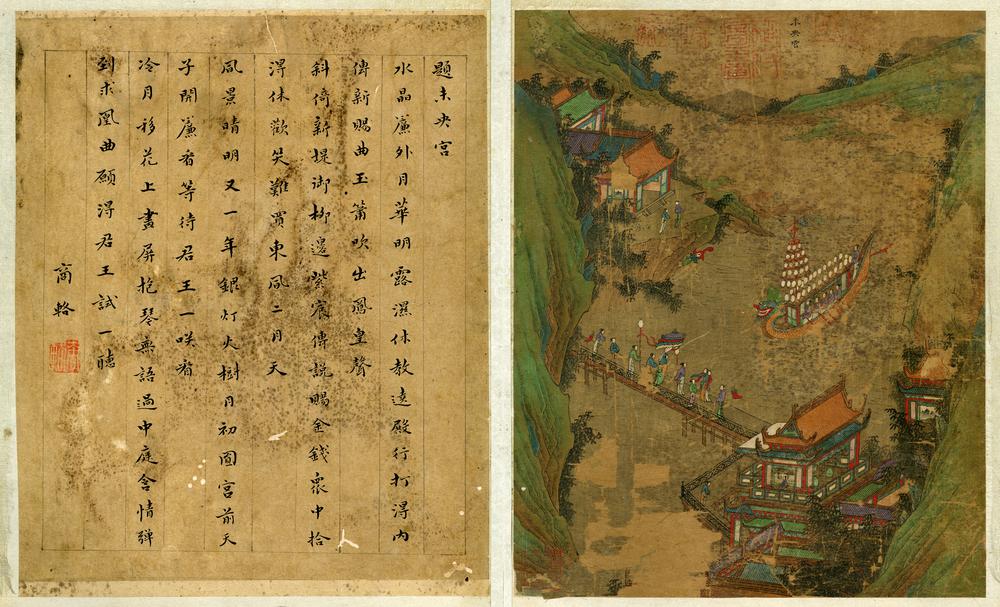 題未央宮
水晶廉外月華明露濕休教遶殿行打淂内
傳新賜曲玉簫吹出鳳皇聲
斜倚新堤御柳邊紫宸傳説賜金錢衆中拾
淂休歡笑難買東風二月天
風景晴明又一年銀灯火樹月初圎宮前天
子開廉看等待君王一咲看
冷月移花上畫屏抱琴無語過中庭含情彈
到求凰曲願淂君王試一聴
商輅
未央宮